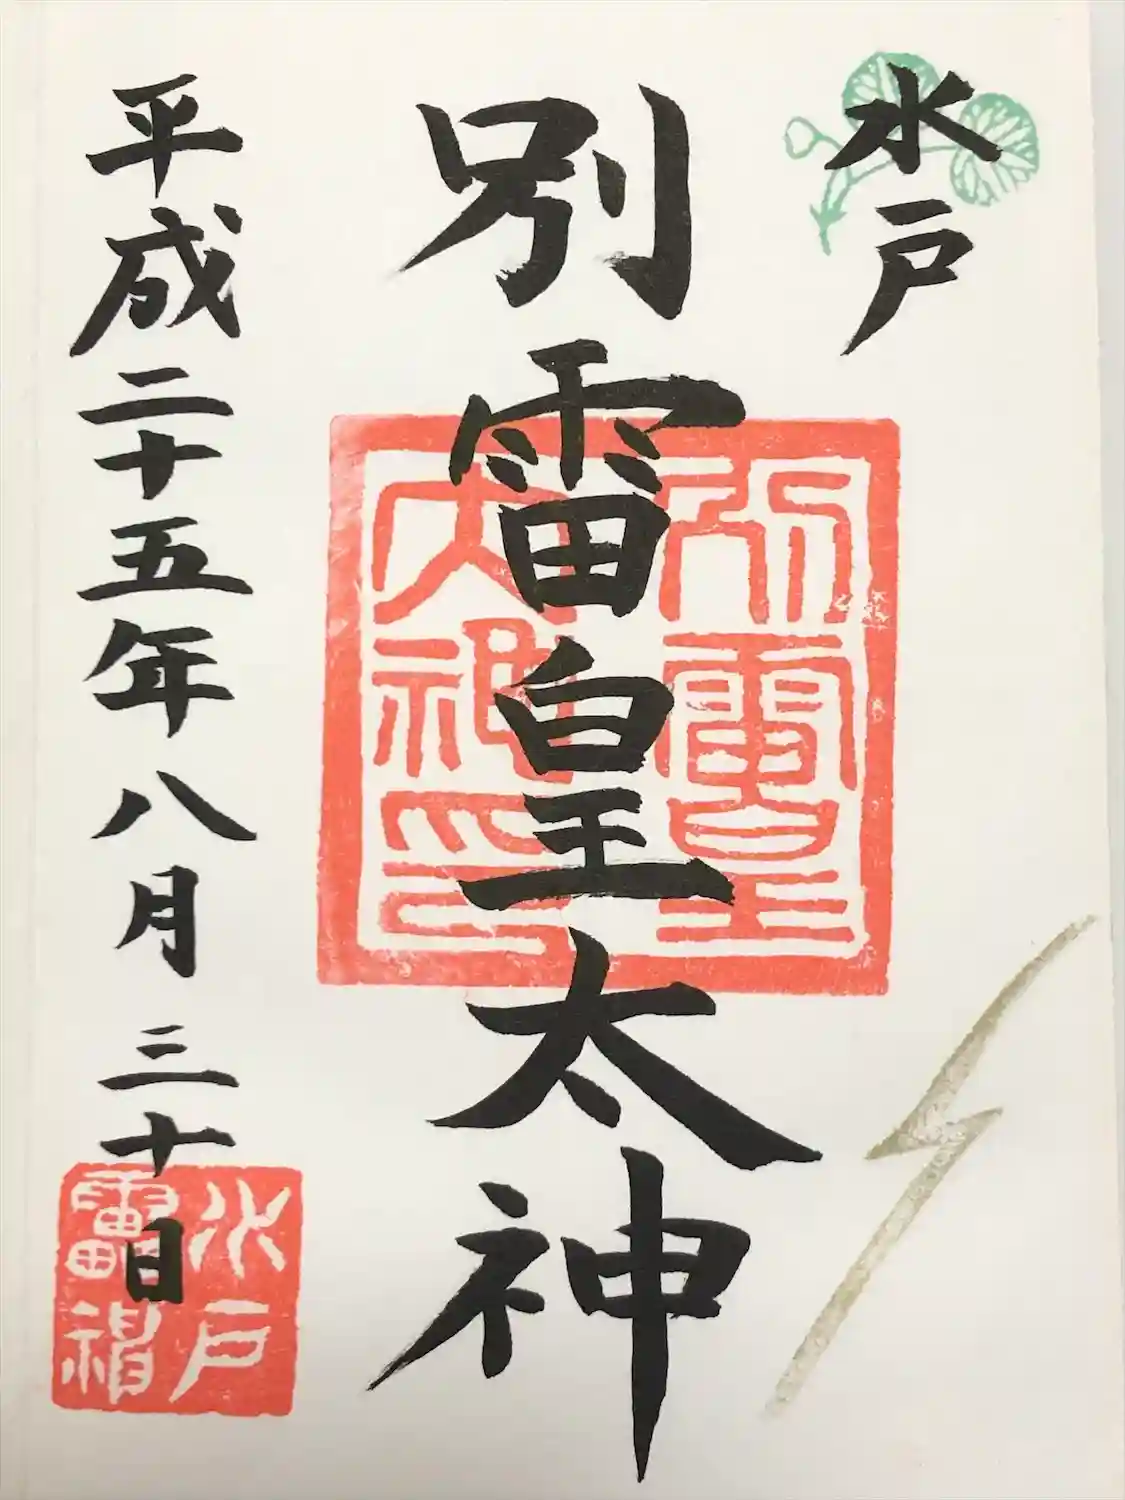 水戸
別雷皇太神
平成二十五年八月三十日
別雷皇
大神印
水戸
雷神